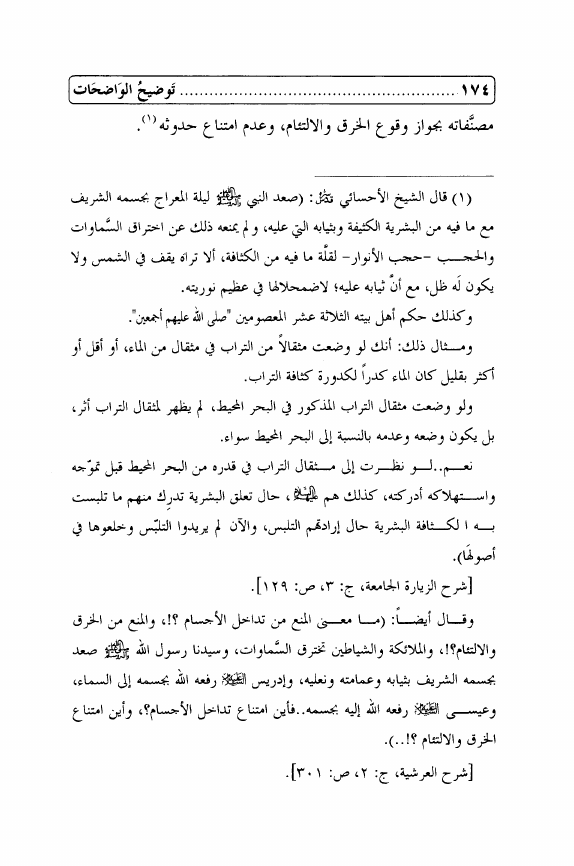 ١٧٤ ........................................................ تَوضيحُ الوَاضحَات
مصنَّفاته بجواز وقوع الخرق والالتئام، وعدم امتناع حدوثه(١).
(١) قال الشيخ الأحسائي قدس: (صعد النبي ﷺ ليلة المعراج بجسمه الشريف
مع ما فيه من البشرية الكثيفة وبثيابه التي عليه، ولم يمنعه ذلك عن اختراق السَّماوات
والحجـــب -حجب الأنوار- لقلَّة ما فيه من الكثافة، ألا تراه يقف في الشمس ولا
يكون لَه ظل، مع أنَّ ثيابه عليه؛ لاضمحلالها في عظيم نوريته.
وكذلك حكم أهل بيته الثلاثة عشر المعصومين "صلى الله عليهم أجمعين".
ومـــثال ذلك: أنك لو وضعت مثقالاً من التراب في مثقال من الماء، أو أقل أو
أكثر بقليل كان الماء كدراً لكدورة كثافة التراب.
ولو وضعت مثقال التراب المذكور في البحر المحيط، لم يظهر لمثقال التراب أثر،
بل يكون وضعه وعدمه بالنسبة إلى البحر المحيط سواء.
نعـــم..لـــو نظـرت إلى مـــثقال التراب في قدره من البحر المحيط قبل تموّجه
واســـتهلاكه أدركته، كذلك هم عليهم السلام، حال تعلق البشرية تدرِك منهم ما تلبست
بـــه ا لكـــثافة البشرية حال إرادتهم التلبس، والآن لم يريدوا التلبّس وخلعوها في
أصولهَا).
[شرح الزيارة الجامعة، ج: ٣، ص: ١٢٩].
وقـــال أيضـــاً: (مـــا معـــنى المنع من تداخل الأجسام ؟!، والمنع من الخرق
والالتئام؟!، والملائكة والشياطين تخترق السَّماوات، وسيدنا رسول الله ﷺ صعد
بجسمه الشريف بثيابه وعمامته ونعليه، وإدريس عليه السلام رفعه الله بجسمه إلى السماء،
وعيســـى عليه السلام رفعه الله إليه بجسمه..فأين امتناع تداخل الأجسام؟، وأين امتناع
الخرق والالتئام ؟!..).
[شرح العرشية، ج: ٢، ص: ٣٠١].